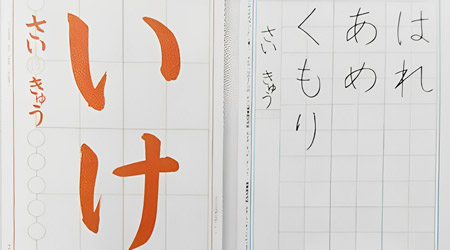 いけ
さい きゅう
はれ
あめ
くもり
さい きゅう